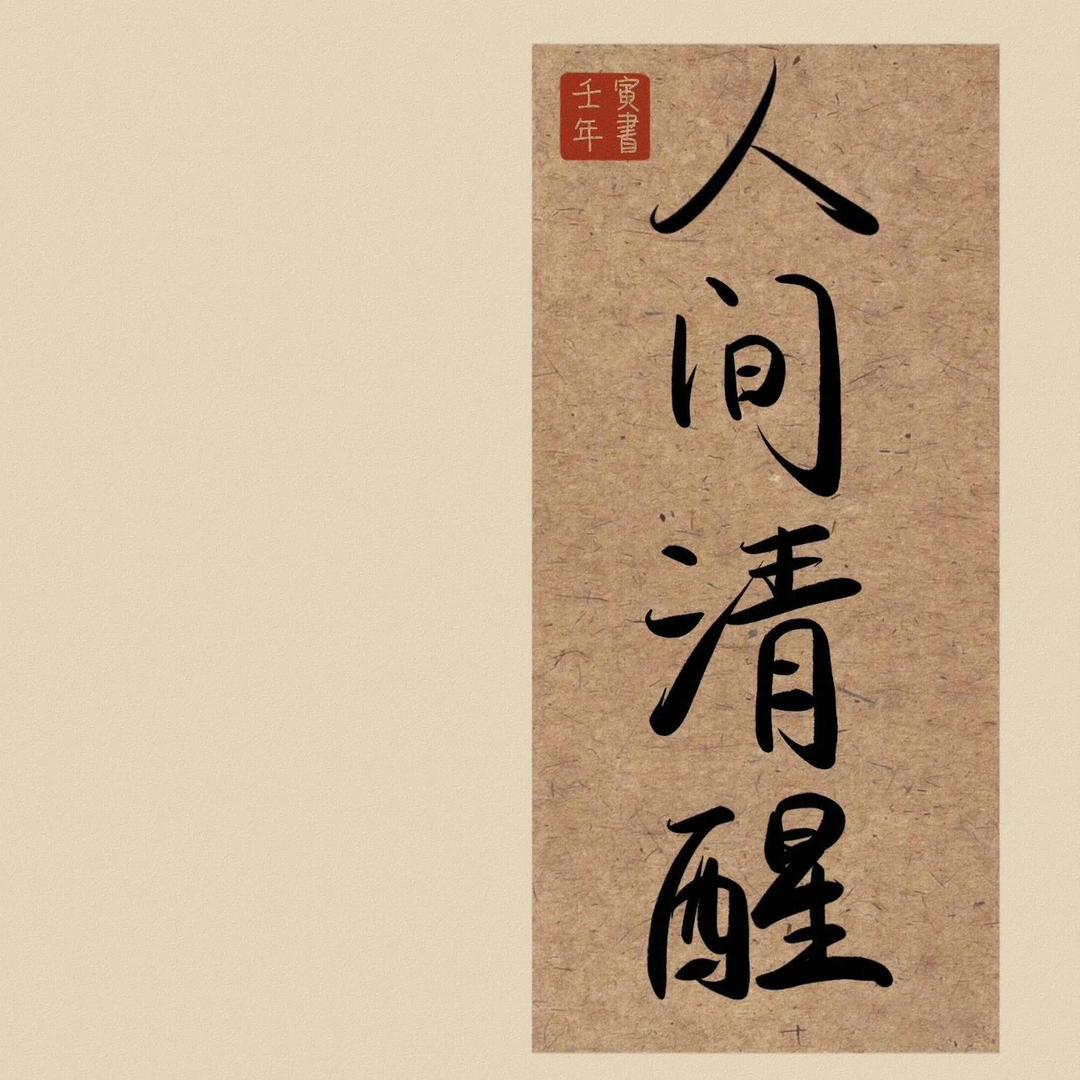 人间清醒
壬寅
年書